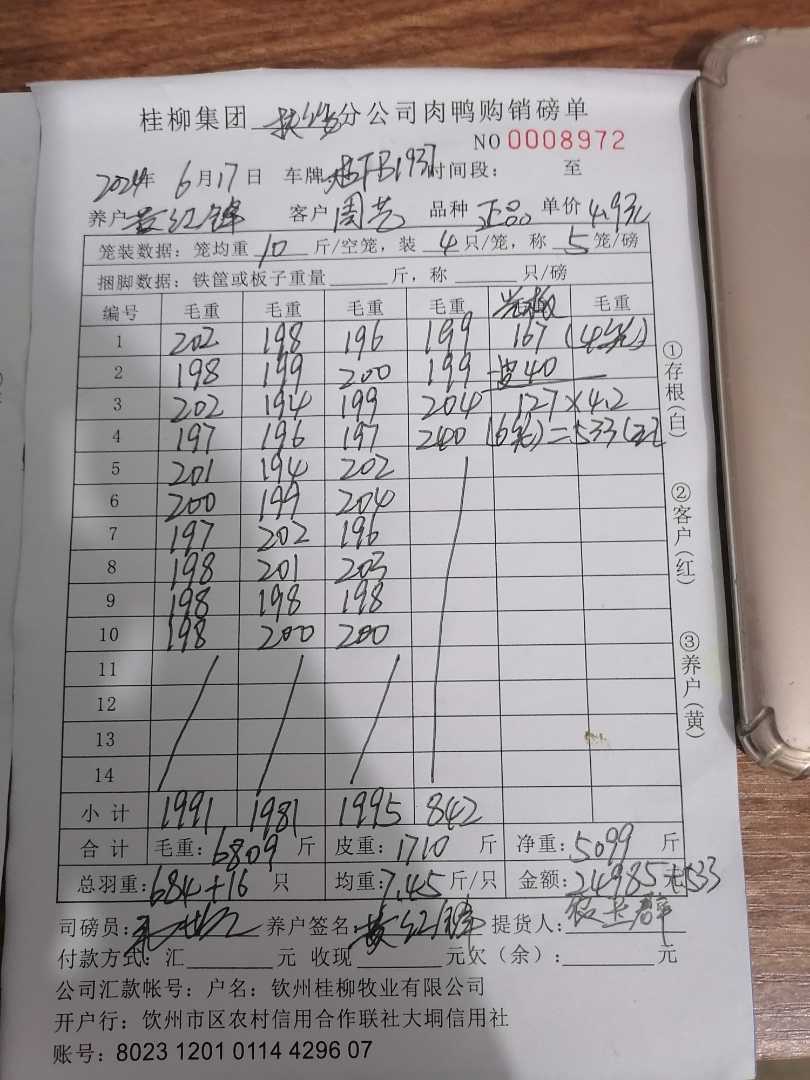 桂柳集团 分公司肉鸭购销磅单
NO 0008972
2024年 6月17日 车牌 FB1937 时间段： 至
养户 黄红锋 客户 周艺 品种 正品 单价 4.9元
笼装数据：笼均重 10 斤/空笼，装 4 只/笼，称 5 笼/磅
捆脚数据：铁筐或板子重量 斤，称 只/磅
编号 毛重 毛重 毛重 毛重 毛重
1 202 198 196 199 167 (4笼)
2 198 199 200 199 -皮40
3 202 194 199 204 127×4.2
4 197 196 197 240 (16只)=533(元)
5 201 194 202
6 200 199 204
7 197 202 196
8 198 201 203
9 198 198 198
10 198 200 200
11
12
13
14
小计 1991 1981 1995 842
合计 毛重：6809 斤 皮重：1710 斤 净重：5099 斤
总羽重：684+16 只 均重：7.45 斤/只 金额：24985 元+533
司磅员： 养户签名：黄红锋 提货人：
付款方式：汇 元 收现 元欠（余）： 元
公司汇款帐号：户名：钦州桂柳牧业有限公司
开户行：钦州市区农村信用合作联社大垌信用社
账号：8023 1201 0114 4296 07
①存根(白)
②客户(红)
③养户(黄)